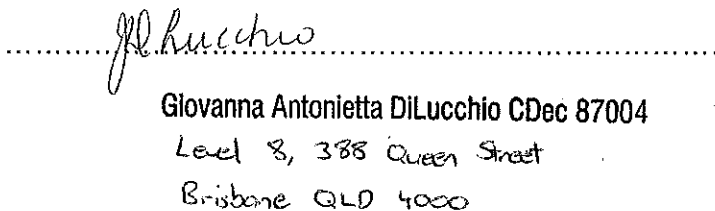 Giovanna Antonietta DiLucchio CDec 87004
Level 8, 388 Queen Street
Brisbane QLD 4000